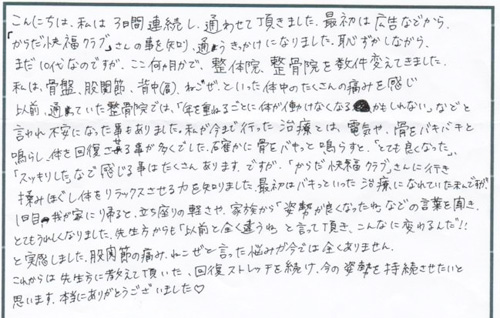 こんにちは、私は3日間連続し、通わせて頂きました。最初は広告などから、
「からだ快福クラブ」さんの事を知り、通うきっかけになりました。恥ずかしながら、
まだ10代なのですが、ここ何か月かで、整体院、整骨院を数件変えてきました。
私は、骨盤、股関節、背中(肩)、ねこぜ、といった体中のたくさんの痛みを感じ
以前、通っていた整骨院では、「年を重ねるごとに体が動けなくなるかもしれない」などと
言われ不安になった事もありました。私が今まで行った治療とは、電気や、骨をバキバキと
鳴らし、体を回復させる事が多くでした。確かに骨をバキッと鳴らすと、「とても良くなった」、
「スッキリした」など感じる事はたくさんあります。ですが、「からだ快福クラブ」さんに行き
揉みほぐし体をリラックスさせる力を知りました。最初はバキッといった治療になれていたんですが、
1日目我が家に帰ると、立ち座りの軽さや、家族から「姿勢が良くなったね」などの言葉を聞き、
とてもうれしくなりました。先生方からも「以前と全く違うね」と言って頂き、こんなに変わるんだ!!
と実感しました。股関節の痛み、ねこぜと言った悩みが今では全くありません。
これからは先生方に教えて頂いた、回復ストレッチを続け、今の姿勢を持続させたいと
思います。本当にありがとうございました♡